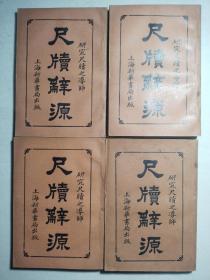 研究尺牘之導師
尺牘辭源
上海新華書局出版
研究尺牘之導師
尺牘辭源
上海新華書局出版
研究尺牘之導師
尺牘辭源
上海新華書局出版
研究尺牘之導師
尺牘辭源
上海新華書局出版